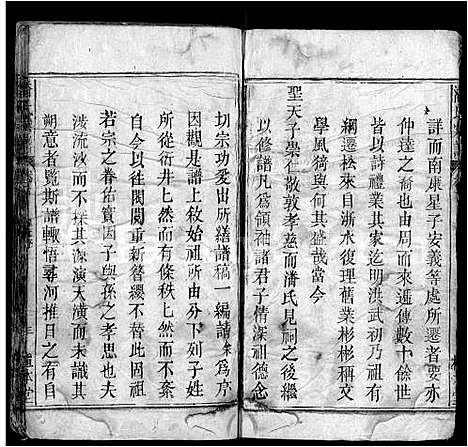 詳而南康星子安義等處所遷者要亦
仲達之裔也由周而來遞傳數十餘世
皆以詩禮業其家迄明洪武初乃祖有
綱遷松來自浙水復理舊業彬彬稱文
學風猗與何其盛哉當今
聖天子崇仁敬敦孝慈而潘氏見祠之後繼
以修譜凡為領袖諸君子情深祖德念
切宗功爰出所繕譜稿一編請余為序
因觀是譜上敘始祖所由分下列子姓
所從衍井井然而有條秩秩然而不替
自今以往閥閱重新簪纓不替此固祖
若宗之眷佑實因子與孫之孝思也夫
涉流沙而不採其源演天潢而未識其
朔意者覽斯譜輙悟尋河推日之有自